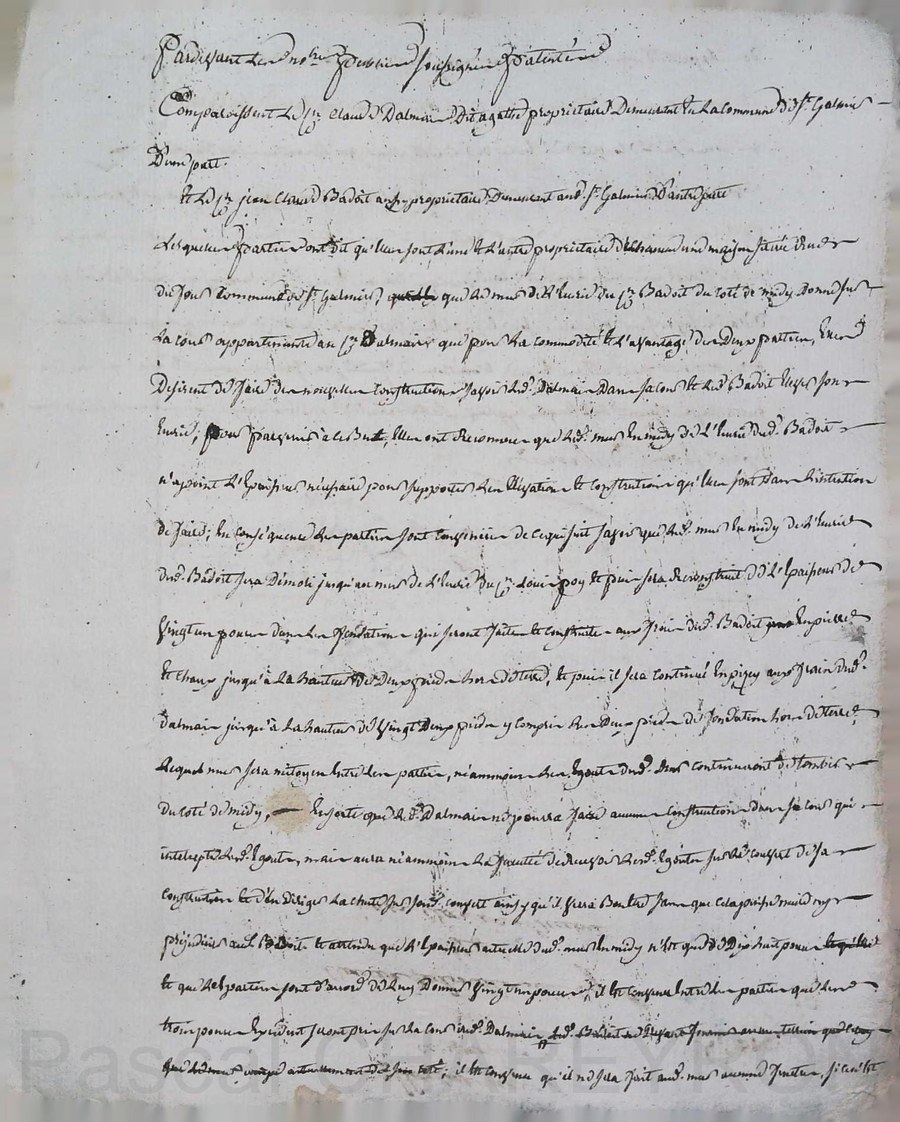 Pardevant Les no.re publics soussignés patentés
Comparoissent Le Cn Claude Dalmais Dit agathe propriétaire Demeurant En La Commune de St Galmier
D'une part.
Et Le Cn jean Claude Badoit aussy propriétaire Demeurant aud. St Galmier D'autre part
Lesquelles parties ont dit qu'elles sont L'une Et L'autre propriétaires de chacune une maison située
Commune de St Galmier, que Le mur de L'Ecurie du Cn Badoit du coté de midy Donne sur
La cour appartenante au Cn Dalmais que pour La commodité Et L'avantage des Deux parties,
Désirent de faire des nouvelles Constructions savoir Led. Dalmais Dans sa cour Et Led. Badoit sur son
Ecurie, pour parvenir à ce But, Elles ont Reconnu que Led. mur En midy de L'Ecurie dud. Badoit
n'a point L'Epaisseur nécessaire pour supporter Les Elévations Et constructions qu'elles sont Dans L'intention
de faire; En conséquence Les parties sont convenues de ce qui suit savoir que Led. mur En midy de L'Ecurie
dud. Badoit sera Démoli jusqu'au mur de L'Ecurie du Cn Louis poy Et puis sera Reconstruit de L'Epaisseur de
Vingt un pouces dans Les fondations qui seront faites Et construites aux frais dud. Badoit En pierre
Et chaux jusqu'à La hauteur de Deux pieds hors de terre, Et puis il sera continué En pizey aux frais dud.
Dalmais jusqu'à La hauteur de Vingt Deux pieds y compris Les Deux pieds de fondation hors de terre,
Lequel mur sera mitoyen Entre Les parties, néammoins Les Egouts dud. mur continueront de tomber
du coté de midy, En sorte que Led. Dalmais ne pourra faire aucune Construction Dans sa cour qui
intercepte Lesd. Egouts, mais aura néammoins La faculté de Recevoir Lesd. Egouts sur Le couvert de sa
construction Et d'En Diriger La chute sur sond. couvert ainsy qu'il Verra Bon Etre sans que cela puisse nuire ny
préjudicier aud. Badoit Et attendu que L'Epaisseur actuelle dud. mur En midy n'est que de Dix huit pouces
Et que Les parties sont d'accord de Luy Donner Vingt un pouces, il Est convenu Entre Les parties que Les
trois pouces Excédent seront pris sur La cour dud. Dalmais
il Est convenu qu'il ne sera fait aud. mur aucune fenetre, si ce n'Est
Pascal